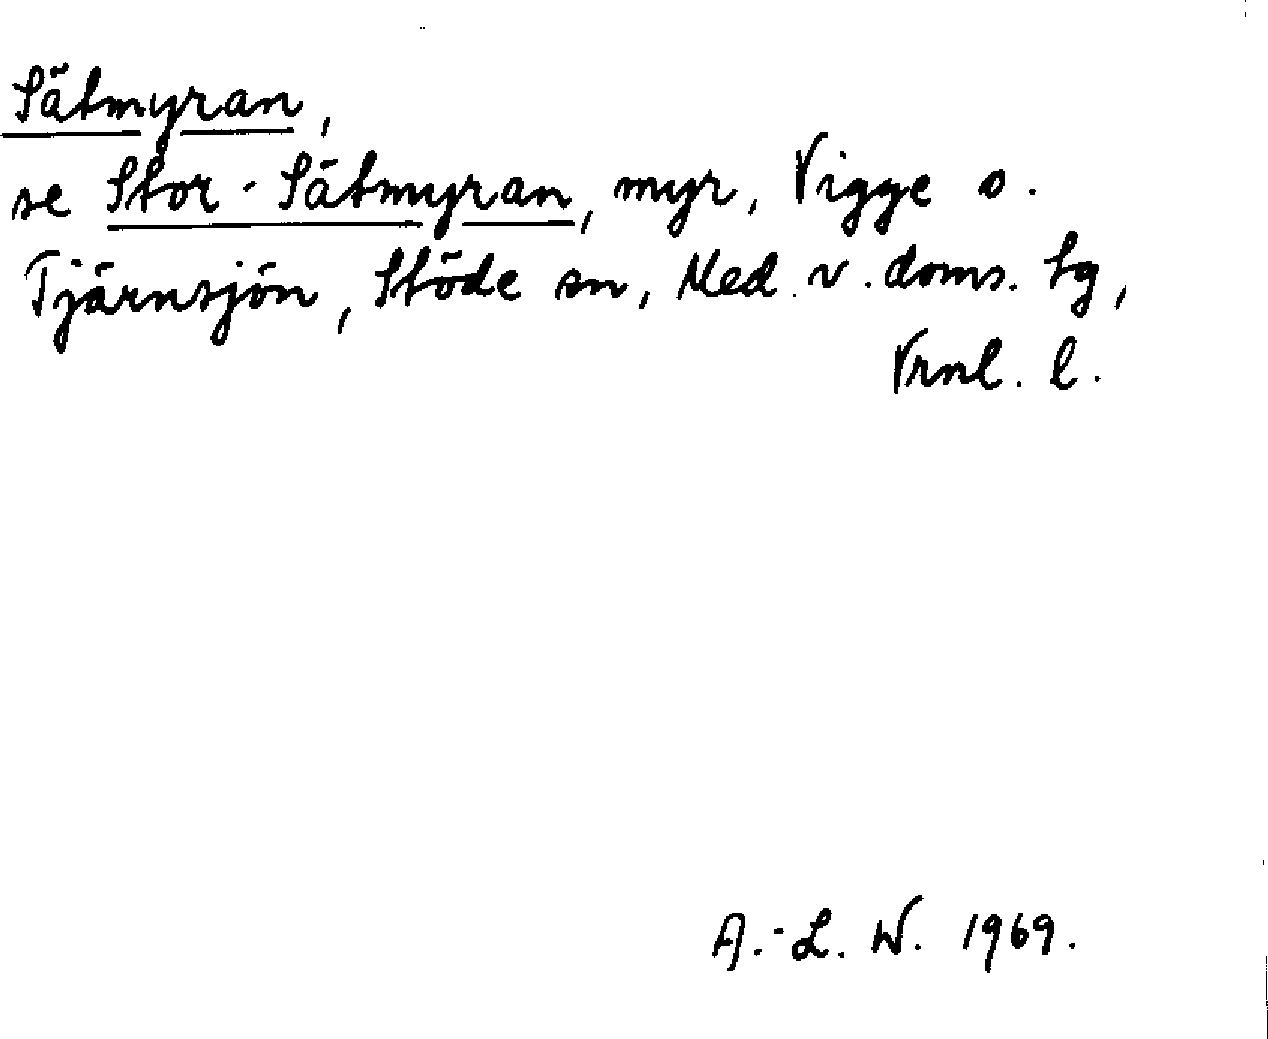 Sätmyran,
se Stor-Sätmyran, myr, Vigge o.
Tjärnsjön, Stöde sn, Med. v. doms. tg,
Vrnl. l.
A.-L. W. 1969.